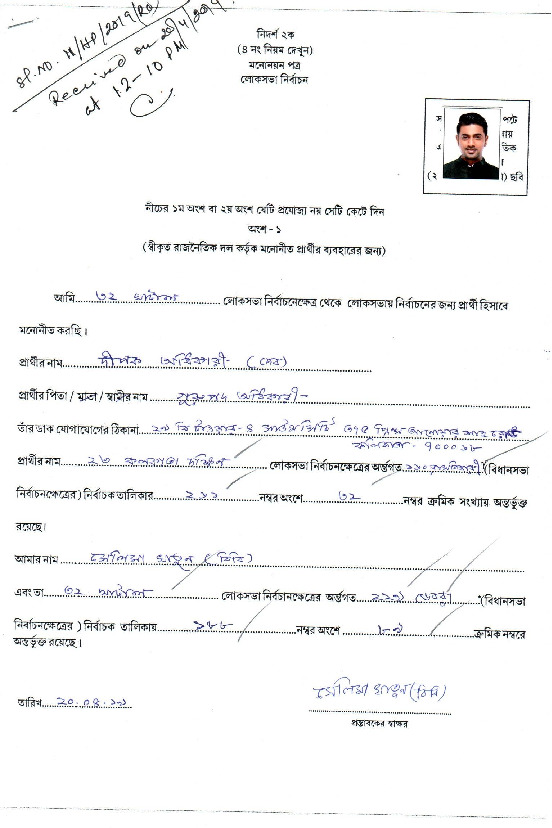 SL.NO. 11/HP/2019/RO
Received on 20/4/2019
at 12-10 PM
নিদর্শ ২ক
(৪ নং নিয়ম দেখুন)
মনোনয়ন পত্র
লোকসভা নির্বাচন
স পটে
য়ায়
এ তিক
।
(২ ।) ছবি
নীচের ১ম অংশ বা ২য় অংশ যেটি প্রযোজ্য নয় সেটি কেটে দিন
অংশ - ১
(স্বীকৃত রাজনৈতিক দল কর্তৃক মনোনীত প্রার্থীর ব্যবহারের জন্য)
আমি ৩২ ঘাটাল লোকসভা নির্বাচনেক্ষেত্র থেকে লোকসভায় নির্বাচনের জন্য প্রার্থী হিসাবে
মনোনীত করছি।
প্রার্থীর নাম দীপক অধিকারী (দেব)
প্রার্থীর পিতা / মাতা / স্বামীর নাম গুরুপদ অধিকারী
তাঁর ডাক যোগাযোগের ঠিকানা
কলিকাতা-
প্রার্থীর নাম ২৩ কলকাতা দক্ষিণ লোকসভা নির্বাচনক্ষেত্রের অন্তর্গত (বিধানসভা
নির্বাচনক্ষেত্রের) নির্বাচক তালিকার নম্বর অংশে নম্বর ক্রমিক সংখ্যায় অন্তর্ভুক্ত
রয়েছে।
আমার নাম সেলিমা খাতুন (বিবি)
এবং তা ৩২ ঘাটাল লোকসভা নির্বাচনক্ষেত্রের অর্ন্তগত ডেবরা (বিধানসভা
নির্বাচনক্ষেত্রের) নির্বাচক তালিকায় ১৮৮ নম্বর অংশে ৮১ ক্রমিক নম্বরে
অন্তর্ভুক্ত রয়েছে।
তারিখ ২০.০৪.১৯
সেলিমা খাতুন (বিবি)
প্রস্তাবকের স্বাক্ষর